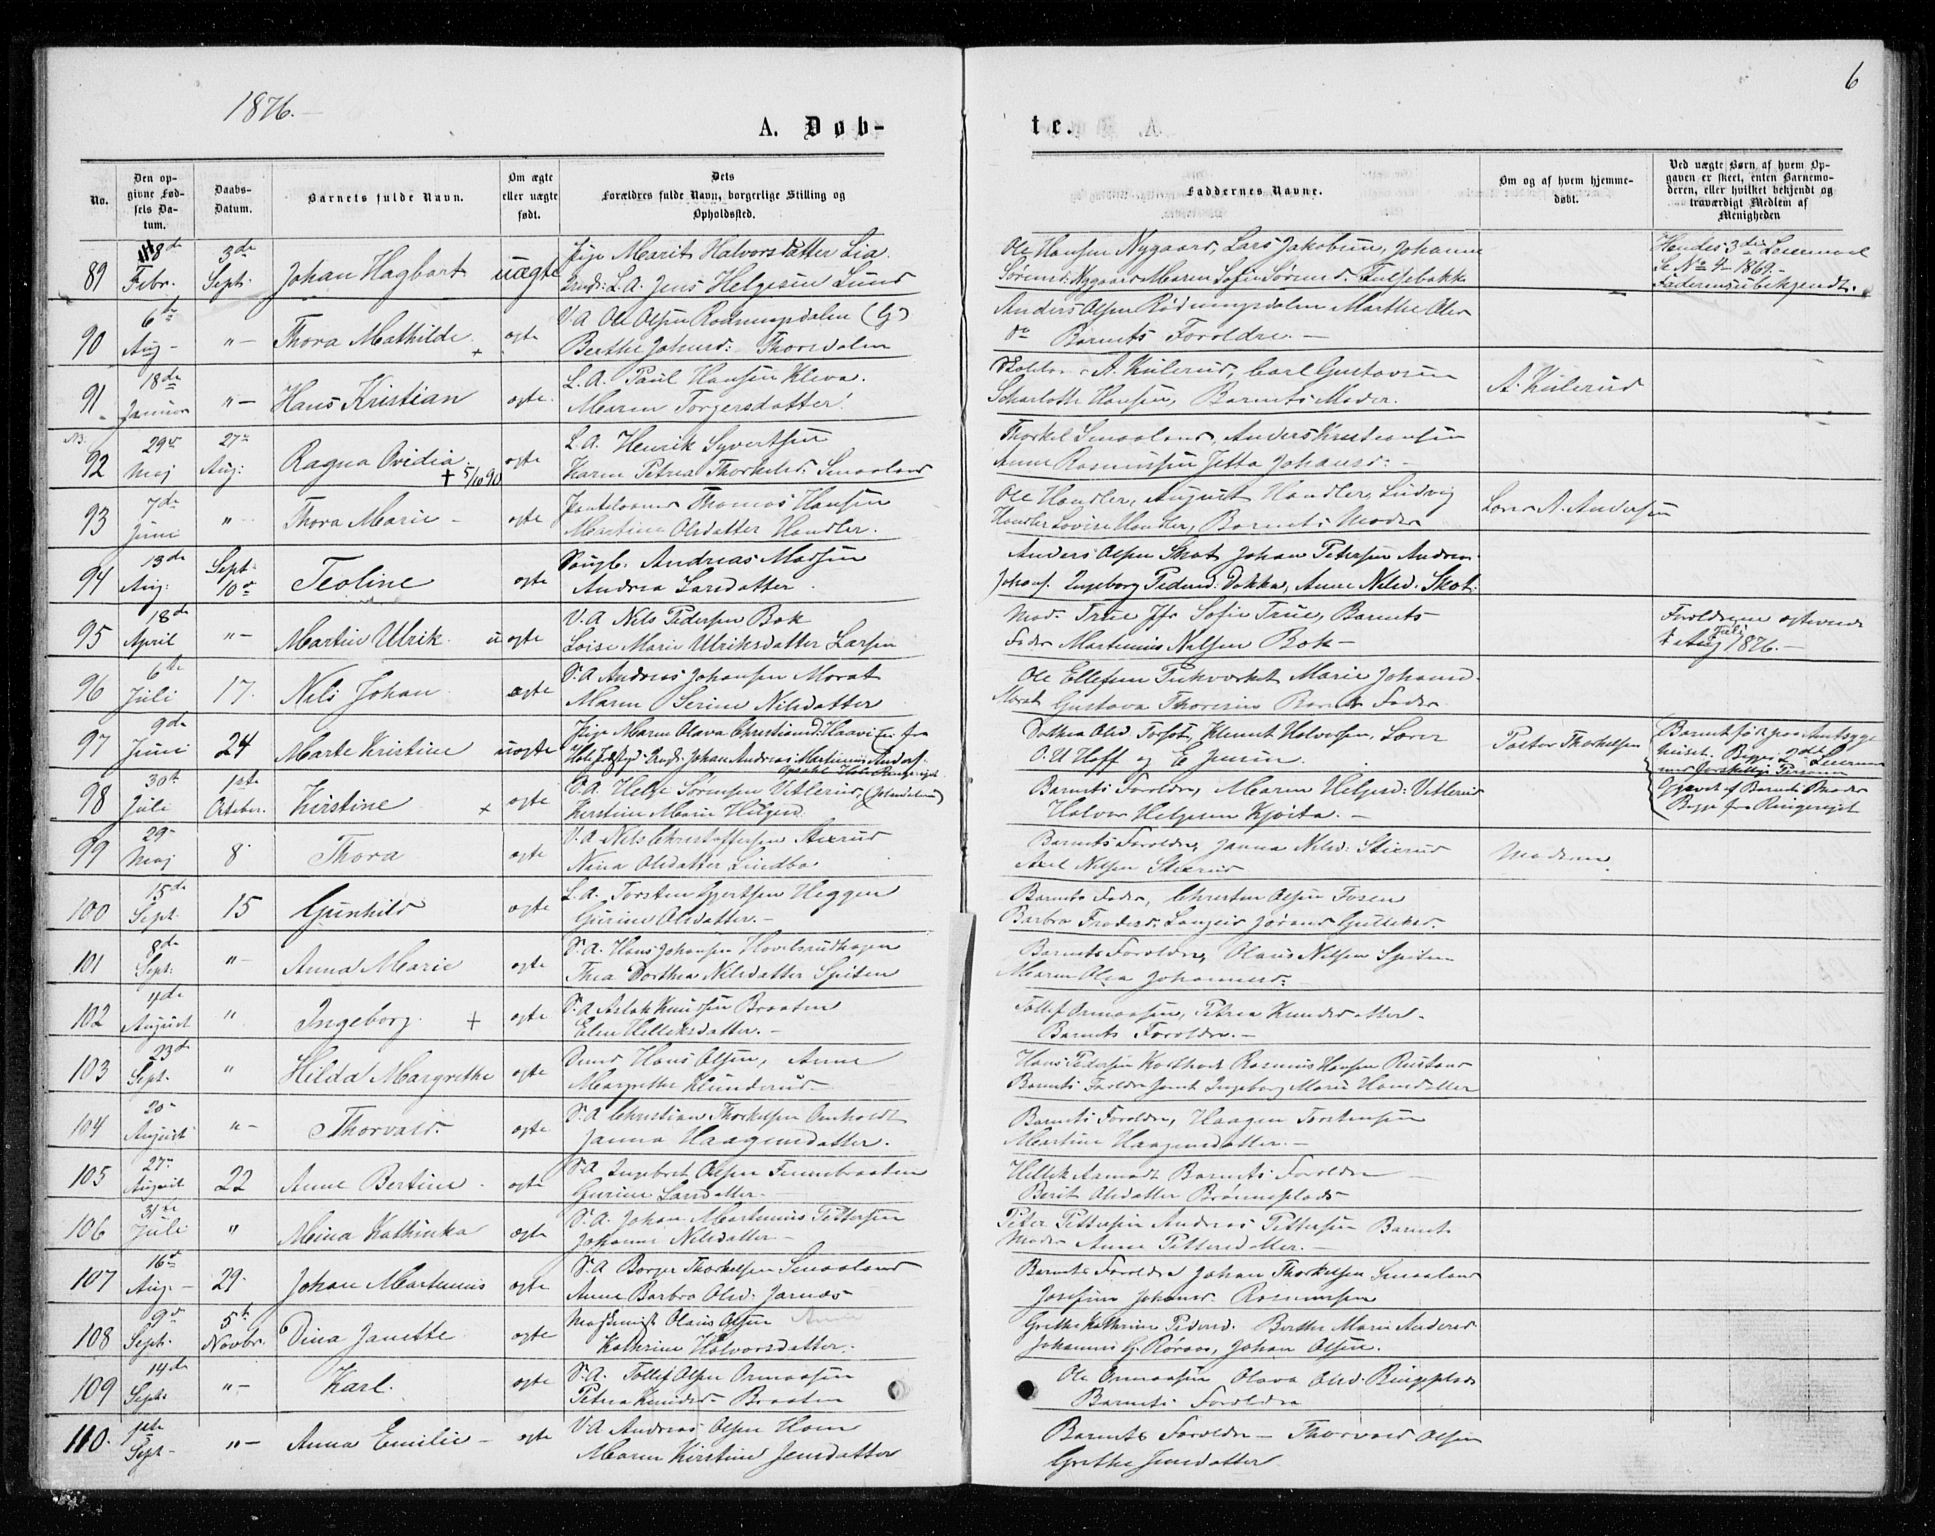 1876.
6
A. Døb-
te.
No.
Den op-
givne Fød-
sels Da-
tum.
Daabs-
Datum.
Barnets fulde Navn.
Om ægte
eller uægte
født.
Dets
Forældres fulde Navn, borgerlige Stilling og
Opholdssted.
Faddernes Navne.
Om og af hvem hjemme-
døbt.
Ved uægte Børn af hvem Op-
gaven er skeet, enten Barnemo-
deren, eller hvilket bekjendt og
troværdigt Medlem af
Menigheden
89
Febr.
3de
Sept.
Johan Hagbart
uægte
Pige Marit Halvorsdatter Lia.
L. A. Jens Helgesen Lund
Ole Hansen Nygaard, Lars Jakobsen, Johanne
Sørensd: Nygaard Maren Sofie Sørensd.
Hendes 3die Leiermaal
Se No 4 - 1869.-
Faderens ubekjendt.
90
6te
Aug -
" -
Thora Mathilde +
ægte
V. A. Ole Olsen Rødningsdalen (G)
Berthe Johnsd: Thorsdalen
Anders Olsen Rødningsdalen Marthe Ols
do Barnets Forældre. -
91
18de
Januar
" -
Hans Kristian
ægte.
L. A. Paul Hansen Kleva.
Maren Torgersdatter.
A. Kulerud, Carl Gustavsen
Scharlotte Hansen, Barnets Moder.
A. Kulerud
NB.
92
29de
Maj
27de
Aug:
Ragna Ovidia
+ 5/10 90
ægte
L. A. Henrik Syvertsen
Karen Petrea Thorkelsd: Smaaland
Thorkel Smaaland, Anders Kristiansen
Anne Rasmussen Jetta Johansd: -
93
7de
Juni
"
Thora Marie -
ægte
Thomas Hansen
Mathine Olsdatter Handler.
Ole Handler, August Handler, Ludvig
Handler Lovise Handler, Barnets Moder
Lærer A. Andersen
94
13de
Aug.
Sept.
10de
Teoline
ægte
Andreas Madsen
Andrea Larsdatter.
Anders Olsen Skot Johan Petersen Andrea
Johans. Ingeborg Pedersd. Dokka, Anne Nilsd. Skot.
95
18de
April
" -
Martin Ulrik.
uægte
V. A. Nils Pedersen Bok
Loise Marie Ulriksdatter Larsen
Mad. True Jfr Sofie True, Barnets
Fader Martinius Nilsen Bok -
Forældrene ægteviede
Juli
1876. -
96
6te
Juli
17.
Nils Johan
ægte
S. A. Andreas Johansen Morat
Maren Serine Nilsdatter
Ole Ellefsen Marie Johansd.
Morat Gustava Thoresen Barnets Fader
97
9de
Juni
24
Marte Kristine
uægte
Pige Maren Olava Christiansd:
Johan Andreas Martinius Anders.
Dorthea Olsd Fossos, Klemet Halvorsen, Lærer
O. U. Hoff og E Jensen.
Pastor Thorkelsen
98
30te
Juli
1ste
October.
Kirstine +
ægte
S. A. Helge Sørensen Vitlerud,
Kirstine Marie Helgesd
Barnets Forældre, Maren Helgesd: Vitlerud
Halvor Helgesen Kjøsta. -
Gravet af Barnets Moder
Begge fra Ringeriget
99
29de
Maj
8
Thora
ægte
V. A. Nils Christoffersen Stixrud
Nina Olsdatter Lindbo
Barnets Forældre, Janna Nilsd: Stixrud
Axel Nilsen Stixrud
Moderen.
100
15de
Sept.
15
Gunhild
ægte
L. A. Torsten Gjertsen Heggen
Gurine Olsdatter. -
Barnets Fader, Christen Olsen Fosen
101
8de
Sept:
" -
Anna Marie
ægte
S. A. Hans Johansen Hovelsrudhagen
Thea Dorthea Nilsdatter Spiten
Barnets Forældre, Olaus Nilsen Spiten
Maren Olea Johannesd:
102
4de
August
"
Ingeborg. +
ægte
S. A. Aslak Knudsen Braaten
Elen Helleksdatter. -
Tollef Ormaasen, Petrea Knudsdatter.
Barnets Forældre. -
103
23de
Sept.
"
Hilda Margrethe
ægte
Hans Olsen, Anne
Margrethe Klunderud. -
Hans Pedersen Rasmus Hansen Rustand
Barnets Forældre samt Ingeborg Marie Hansdatter
104
20de
August
" -
Thorvald.
ægte
S. A. Christian Thorkelsen Omholdt
Janna Haagensdatter.
Barnets Forældre, Haagen Torstensen
Martine Haagensdatter. -
105
27de
August
22
Anne Bertine -
ægte
S. A. Ingebret Olsen Finnebraaten
Gurine Larsdatter. -
Hellek Aamodt Barnets Forældre -
Berit Olsdatter Brønneplads
106
31te
Juli
"
Meina Kathinka
ægte
S. A. Johan Martinius Pettersen
Johanne Nilsdatter. -
Peter Pettersen Andreas Pettersen Barnets
Moder Anne Pettersdatter. -
107
16de
Aug. -
29.
Johan Martinius
ægte
S. A. Borger Thorkelsen Smaaland
Anne Barbro Olsd: Jarnæs
Barnets Forældre Johan Thorkelsen Smaaland
Josefine Johansd. Rasmussen
108
9de
Sept.
5te
Novbr.
Dina Janette
ægte
Olaus Olsen
Kathrine Halvorsdatter.
Grethe Kathrine Pedersd. Berthe Marie Andersd
Johannes G. Røraas, Johan Olsen.
109
14de
Sept:
" -
Karl.
ægte
S. A. Tollef Olsen Ormaasen
Petrea Knudsd. Braaten
Ole Ormaasen Olava Olsd. Ringsplads
Barnets Forældre
110.
1ste
Sept -
" -
Anna Emilie -
ægte
V. A. Andreas Olsen Hom
Maren Kirstine Jensdatter
Barnets Forældre - Thorvald Olsen
Grethe Jensdatter.